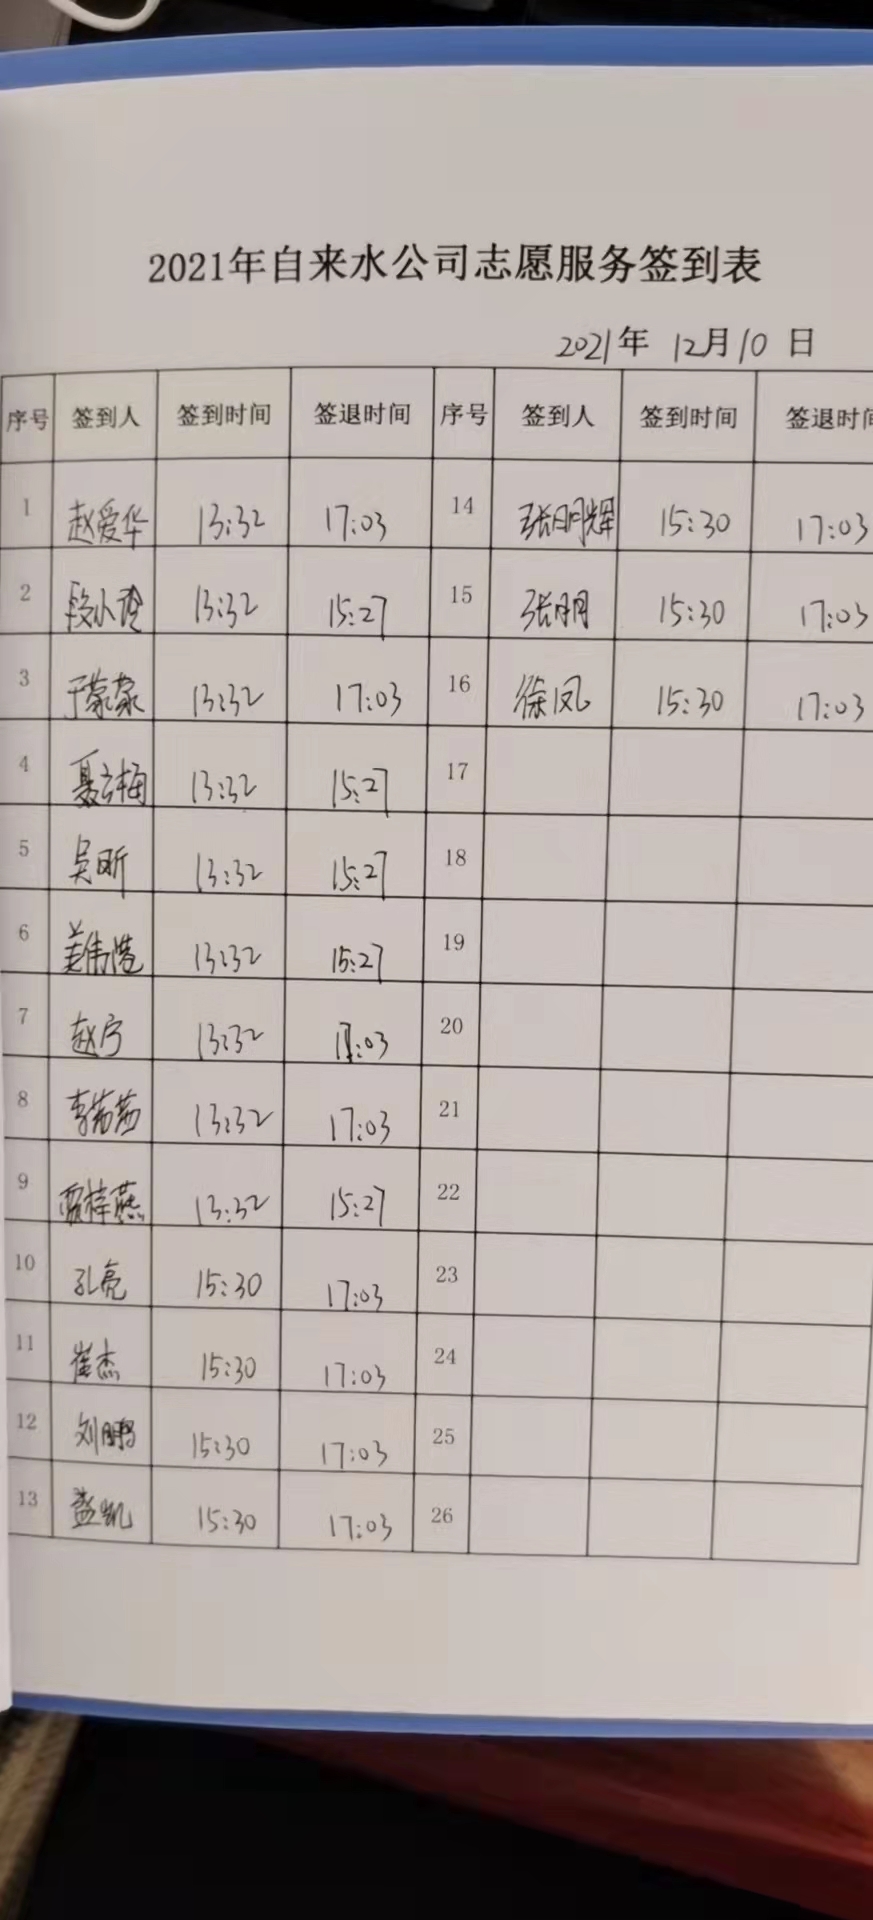 2021年自来水公司志愿服务签到表
2021年 12月10日
序号 签到人 签到时间 签退时间 序号 签到人 签到时间 签退时间
1 赵爱华 13:32 17:03 14 张明辉 15:30 17:03
2 段小 13:32 15:27 15 张明 15:30 17:03
3 于蒙蒙 13:32 17:03 16 徐凤 15:30 17:03
4 聂玉梅 13:32 15:27 17
5 吴昕 13:32 15:27 18
6 姜伟港 13:32 15:27 19
7 赵宁 13:32 17:03 20
8 李茜茜 13:32 17:03 21
9 13:32 15:27 22
10 孔亮 15:30 17:03 23
11 崔杰 15:30 17:03 24
12 刘鹏 15:30 17:03 25
13 孟凯 15:30 17:03 26